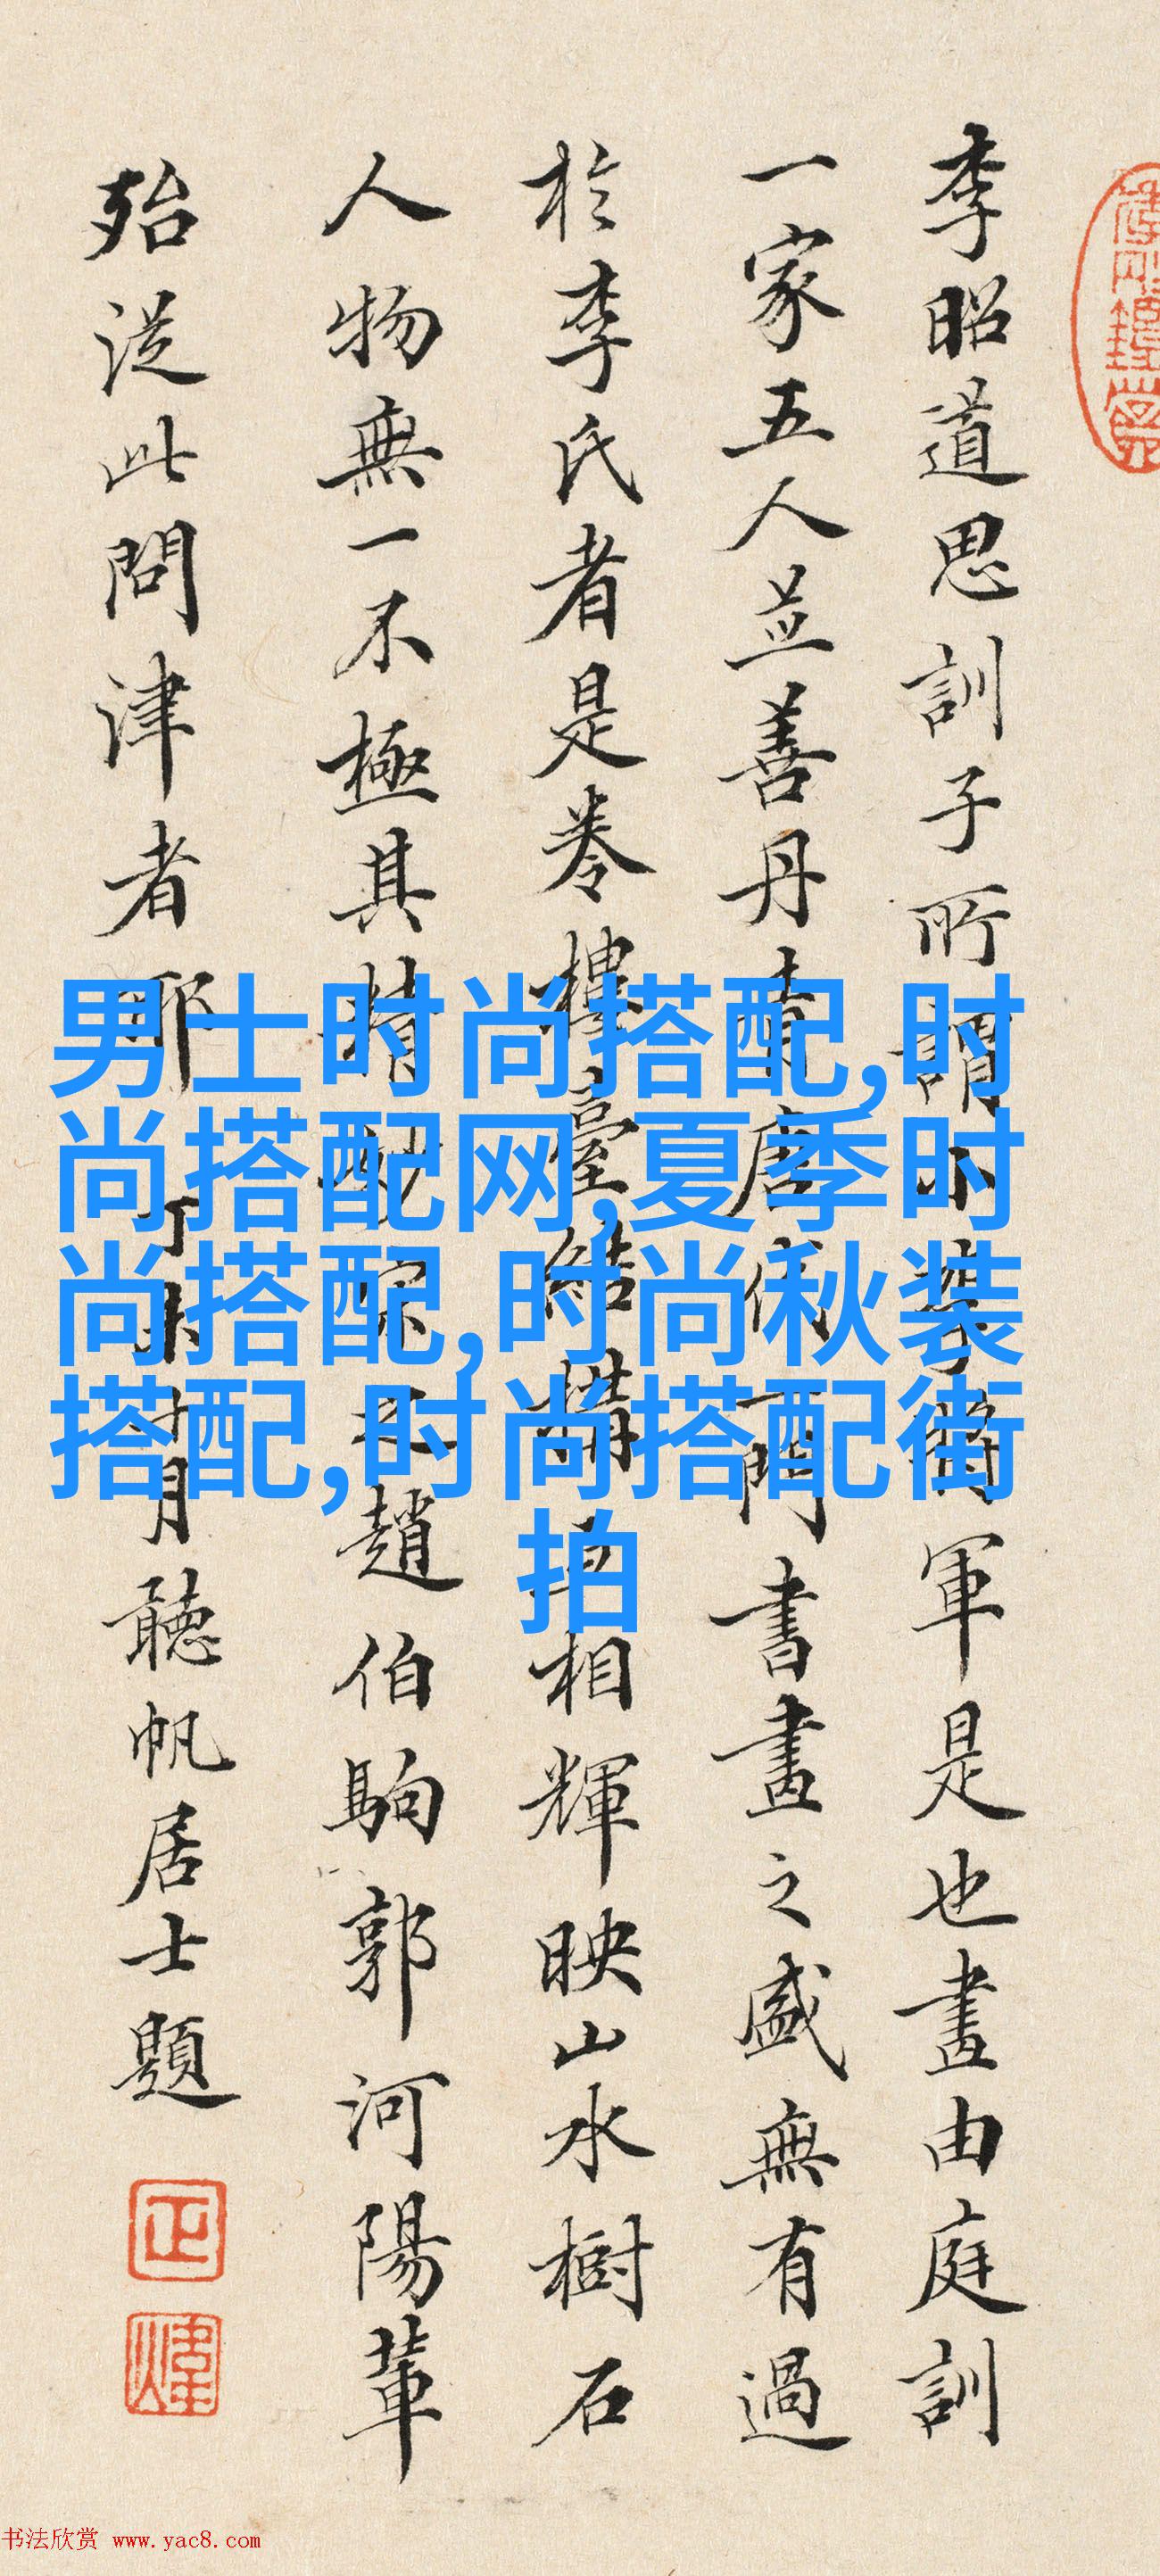 李昭道思訓子所謂小李將軍是也畫由庭訓
一家五人並善丹青唐代一門書畫之盛無有過
於李氏者是卷樓臺結構互相輝映山水樹石
人物無一不極其精妙宋之趙伯駒郭河陽輩
殆從此問津者耶丁未十月聽帆居士題
男士时尚搭配,时
尚搭配网,夏季时
尚搭配,时尚秋装
搭配,时尚搭配街
拍
书法欣赏 www.yac8.com